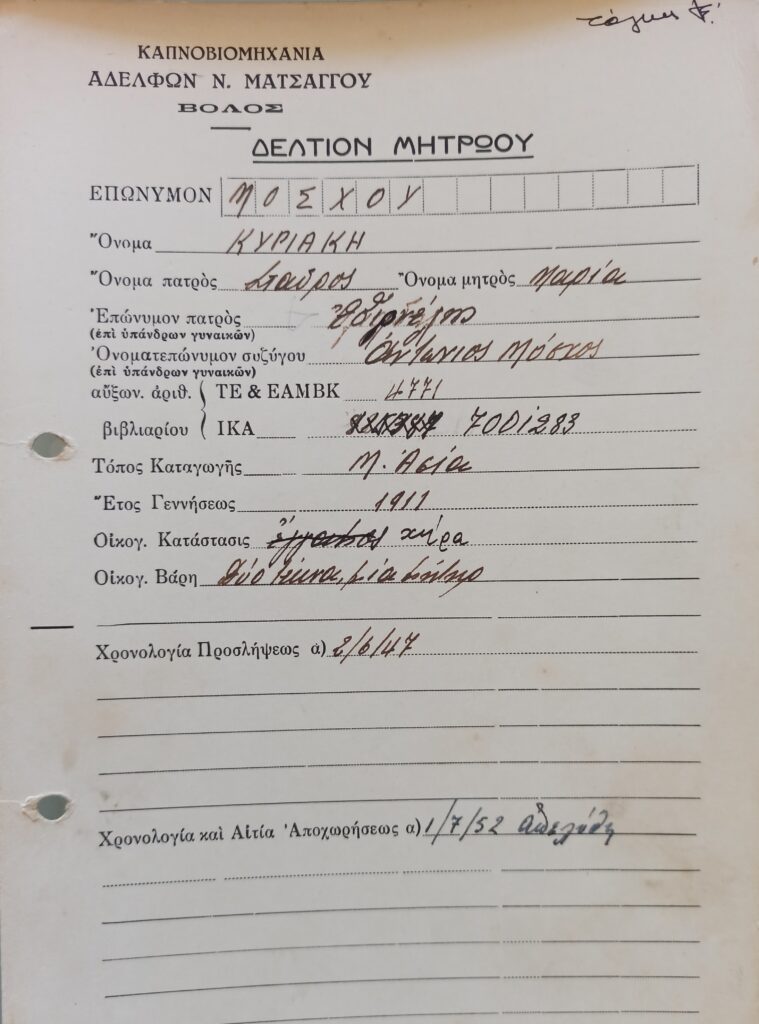 τάξις Γ'
ΚΑΠΝΟΒΙΟΜΗΧΑΝΙΑ
ΑΔΕΛΦΩΝ Ν. ΜΑΤΣΑΓΓΟΥ
ΒΟΛΟΣ
ΔΕΛΤΙΟΝ ΜΗΤΡΩΟΥ
ΕΠΩΝΥΜΟΝ ΜΟΣΧΟΥ
Ὄνομα ΚΥΡΙΑΚΗ
Ὄνομα πατρὸς Σταῦρος Ὄνομα μητρὸς Μαρία
Ἐπώνυμον πατρὸς
(ἐπὶ ὑπάνδρων γυναικῶν)
Ὀνοματεπώνυμον συζύγου Ἀντώνιος Μόσχος
(ἐπὶ ὑπάνδρων γυναικῶν)
αὔξων. ἀριθ. ΤΕ & ΕΑΜΒΚ 4771
βιβλιαρίου ΙΚΑ 7001283
Τόπος Καταγωγῆς Μ. Ἀσία
Ἔτος Γεννήσεως 1911
Οἰκογ. Κατάστασις ἔγγαμος χήρα
Οἰκογ. Βάρη Δύο τέκνα, μία
Χρονολογία Προσλήψεως α) 2/6/47
Χρονολογία καὶ Αἰτία Ἀποχωρήσεως α) 1/7/52 ἀπελύθη